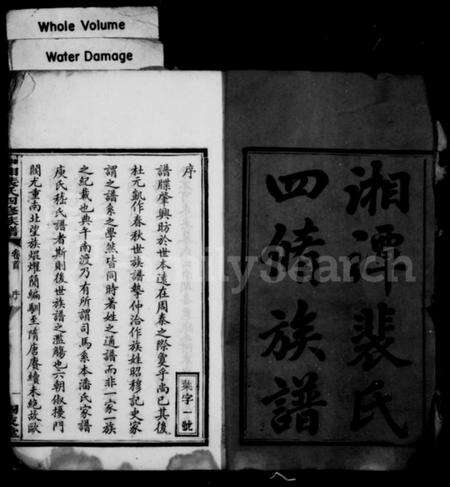 Whole Volume
Water Damage
湘潭裴氏
四脩族譜
序
譜牒肇興昉於世本遠在周秦之際夐乎尚已其後
杜元凱作春秋世族譜摯仲洽作族姓昭穆記史家
謂之譜系之學然皆同時著姓之通譜而非一家一族
之紀載也典午南渡乃有所謂司馬系本潘氏家譜
庾氏嵇氏譜者斯則後世族譜之濫觴也六朝俶擾門
閥尤重南北望族焜燿簡編馴至隋唐賡續未絶故歐
卷首
序
字一號
FamilySearch